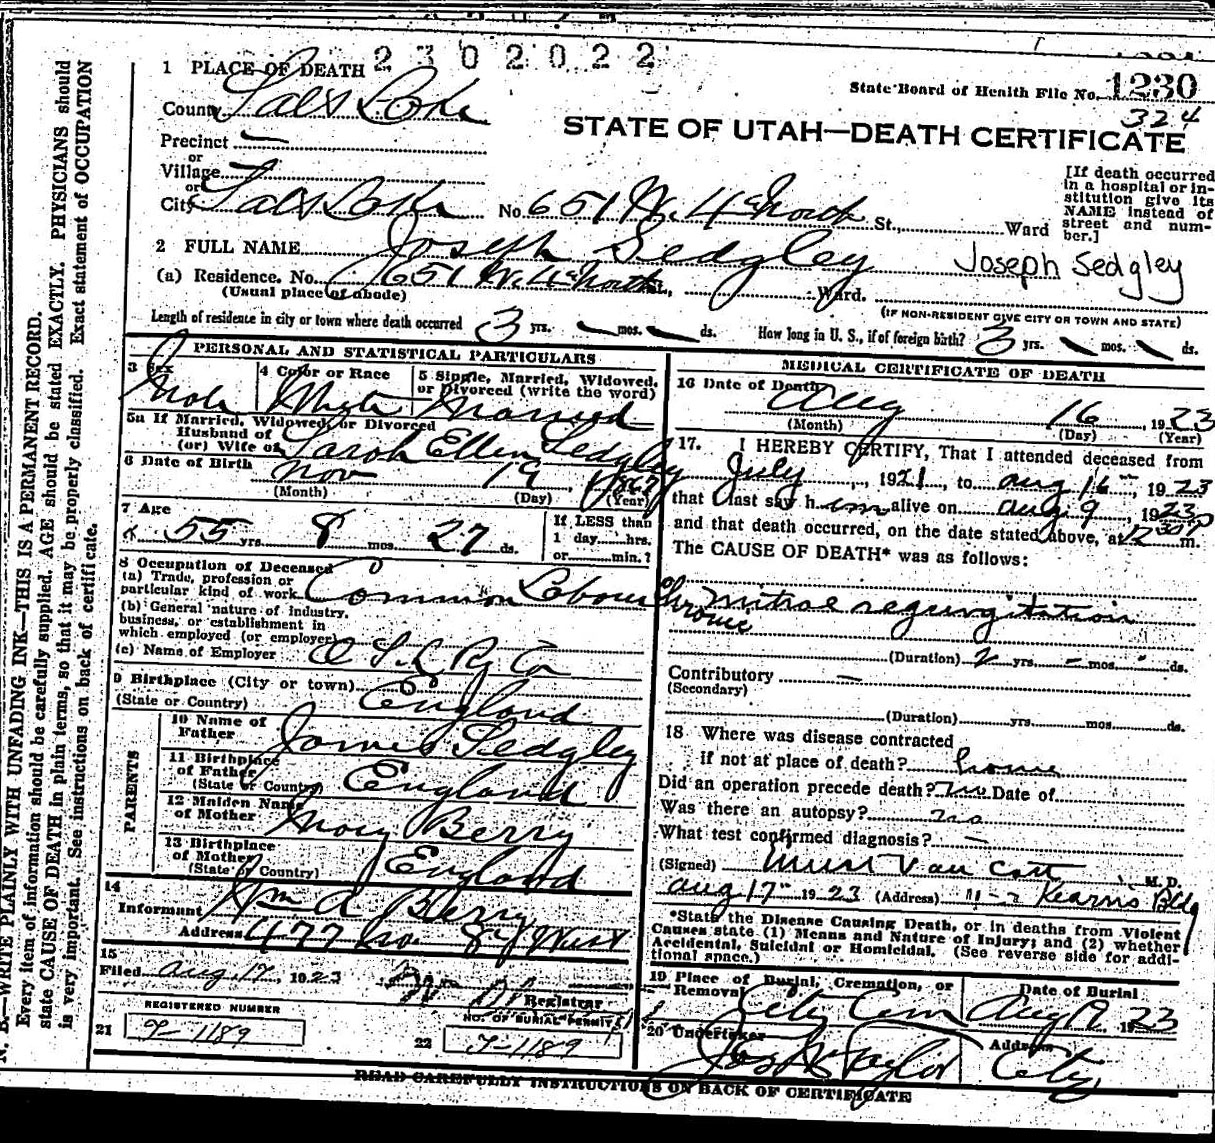 2302022
1 PLACE OF DEATH
State Board of Health File No. 1230
324
County Salt Lake
STATE OF UTAH—DEATH CERTIFICATE
Precinct —
or
Village —
or
City Salt Lake No. 651 W. 4th North St., Ward
[If death occurred in a hospital or institution give its NAME instead of street and number.]
2 FULL NAME Joseph Sedgley Joseph Sedgley
(a) Residence. No. 651 W. 4th North St., Ward.
(Usual place of abode) (IF NON-RESIDENT GIVE CITY OR TOWN AND STATE)
Length of residence in city or town where death occurred 3 yrs. — mos. — ds. How long in U. S., if of foreign birth? 3 yrs. — mos. — ds.
PERSONAL AND STATISTICAL PARTICULARS
3 Sex 4 Color or Race 5 Single, Married, Widowed, or Divorced (write the word)
Male White Married
5a If Married, Widowed, or Divorced
Husband of
(or) Wife of Sarah Ellen Sedgley
6 Date of Birth Nov 19, 1867
(Month) (Day) (Year)
7 Age If LESS than
55 yrs. 8 mos. 27 ds. 1 day hrs.
or min.?
8 Occupation of Deceased
(a) Trade, profession or
particular kind of work Common Labour
(b) General nature of industry,
business, or establishment in
which employed (or employer)
(c) Name of Employer O S L Ry Co
9 Birthplace (City or town)
(State or Country) England
PARENTS
10 Name of
Father James Sedgley
11 Birthplace
of Father
(State or Country) England
12 Maiden Name
of Mother Mary Berry
13 Birthplace
of Mother
(State or Country) England
14
Informant Wm A Berry
Address 477 No. 8th West
15
Filed Aug. 17 1923
Registrar
REGISTERED NUMBER NO. OF BURIAL PERMIT
21 T-1189 22 T-1189
MEDICAL CERTIFICATE OF DEATH
16 Date of Death
Aug 16 1923
(Month) (Day) (Year)
17. I HEREBY CERTIFY, That I attended deceased from
July, 1921, to Aug 16th, 1923
that I last saw him alive on Aug 9, 1923
and that death occurred, on the date stated above, at 12 30 P m.
The CAUSE OF DEATH* was as follows:
Chronic mitral regurgitation
(Duration) 2 yrs. - mos. - ds.
Contributory —
(Secondary)
(Duration) yrs. mos. ds.
18 Where was disease contracted
if not at place of death? home
Did an operation precede death? no Date of
Was there an autopsy? no
What test confirmed diagnosis? —
(Signed) Van Cott M. D.
Aug 17th 1923 (Address) Kearns Bldg
*State the Disease Causing Death, or in deaths from Violent
Causes state (1) Means and Nature of Injury; and (2) whether
Accidental, Suicidal or Homicidal. (See reverse side for addi-
tional space.)
19 Place of Burial, Cremation, or Date of Burial
Removal
City Cem Aug 19 1923
20 Undertaker Address
Jos. Wm Taylor City
READ CAREFULLY INSTRUCTIONS ON BACK OF CERTIFICATE
N. B.—WRITE PLAINLY WITH UNFADING INK—THIS IS A PERMANENT RECORD.
Every item of information should be carefully supplied. AGE should be stated EXACTLY. PHYSICIANS should
state CAUSE OF DEATH in plain terms, so that it may be properly classified. Exact statement of OCCUPATION
is very important. See instructions on back of certificate.